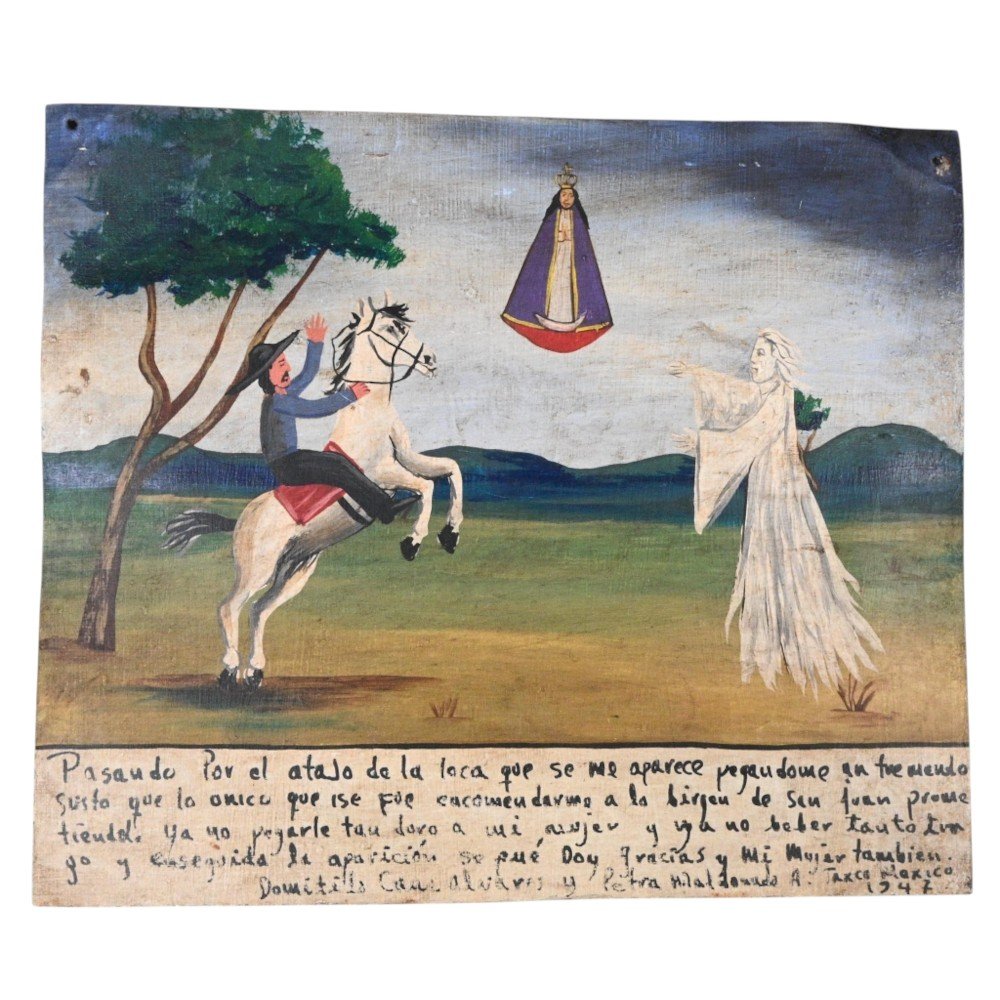 Pasando Por el atajo de la loca que se me aparece pegandome un tremendo
susto que lo onico que ise fue encomendarme a la birgen de san juan prome
tiendo. ya no pegarle tan duro a mi mujer y ya no beber tanto tin
go y enseguida la aparición se pué Doy gracias y Mi Mujer tambien.
Domitilo Alvares y Petra Maldonado A. Taxco Mexico
1947